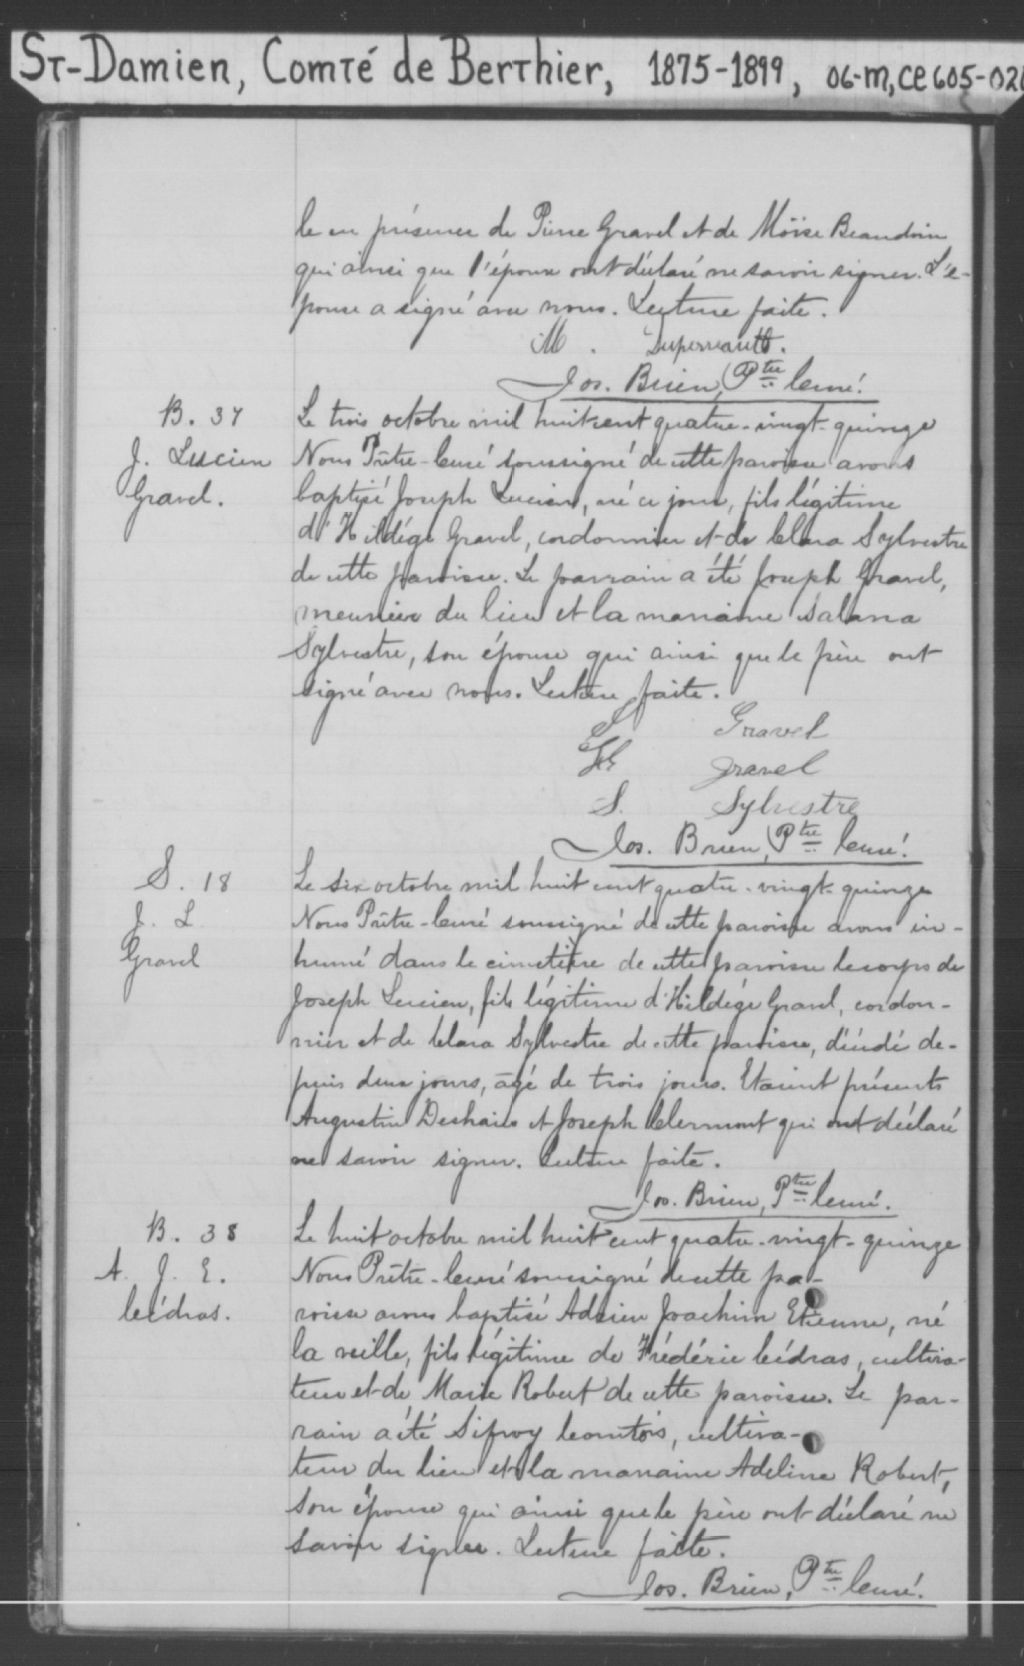 St-Damien, Comté de Berthier, 1875-1899, 06-M, CE605-020
le en présence de Pierre Gravel et de Moïse Beaudoin
qui ainsi que l'époux ont déclaré ne savoir signer. L'é-
pouse a signé avec nous. Lecture faite.
M. Duperreault.
Jos. Brien, Ptre Curé.
B. 37
J. Lucien
Gravel.
Le trois octobre mil huit cent quatre-vingt-quinze
Nous Prêtre-Curé soussigné de cette paroisse avons
baptisé Joseph Lucien, né ce jour, fils légitime
d'Hildége Gravel, cordonnier et de Clara Sylvestre
de cette paroisse. Le parrain a été Joseph Gravel,
meunier du lieu et la marraine Salama
Sylvestre, son épouse qui ainsi que le père ont
signé avec nous. Lecture faite.
Gravel
Gravel
S. Sylvestre
Jos. Brien, Ptre Curé.
S. 18
J. L
Gravel
Le six octobre mil huit cent quatre-vingt-quinze
Nous Prêtre-Curé soussigné de cette paroisse avons in-
humé dans le cimetière de cette paroisse le corps de
Joseph Lucien, fils légitime d'Hildége Gravel, cordon-
nier et de Clara Sylvestre de cette paroisse, décédé de-
puis deux jours, âgé de trois jours. Etaient présents
Augustin Deshaies et Joseph Clermont qui ont déclaré
ne savoir signer. Lecture faite.
Jos. Brien, Ptre Curé.
B. 38
A. J. E.
Cédras.
Le huit octobre mil huit cent quatre-vingt-quinze
Nous Prêtre-Curé soussigné de cette pa-
roisse avons baptisé Adrien Joachim Etienne, né
la veille, fils légitime de Frédéric Cédras, cultiva-
teur et de Marie Robert de cette paroisse. Le par-
rain a été Sifroy Comtois, cultiva-
teur du lieu et la marraine Adeline Robert,
son épouse qui ainsi que le père ont déclaré ne
savoir signer. Lecture faite.
Jos. Brien, Ptre Curé.